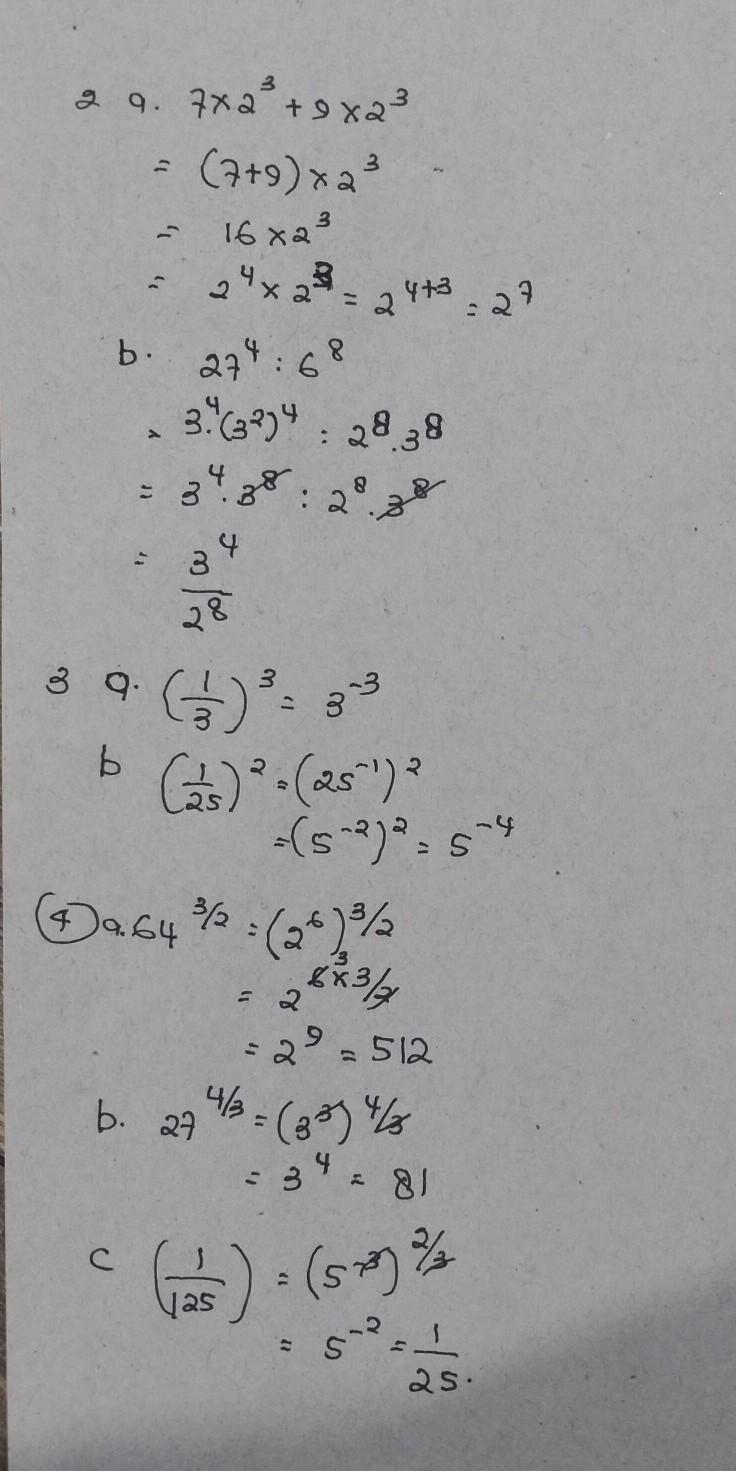 2 a. 7×2³ + 9×2³
= (7+9)×2³
= 16×2³
= 2⁴×2³ = 2⁴⁺³ = 2⁷
b. 27⁴ : 6⁸
= 3⁴.(3²)⁴ : 2⁸.3⁸
= 3⁴.3⁸ : 2⁸.3⁸
= 3⁴/2⁸
3 a. (1/3)³ = 3⁻³
b (1/25)² = (25⁻¹)²
= (5⁻²)² = 5⁻⁴
4 a. 64^3/2 = (2⁶)^3/2
= 2^6×3/2 3
= 2⁹ = 512
b. 27^4/3 = (3³)^4/3
= 3⁴ = 81
c (1/125) = (5⁻³)^2/3
= 5⁻² = 1/25.